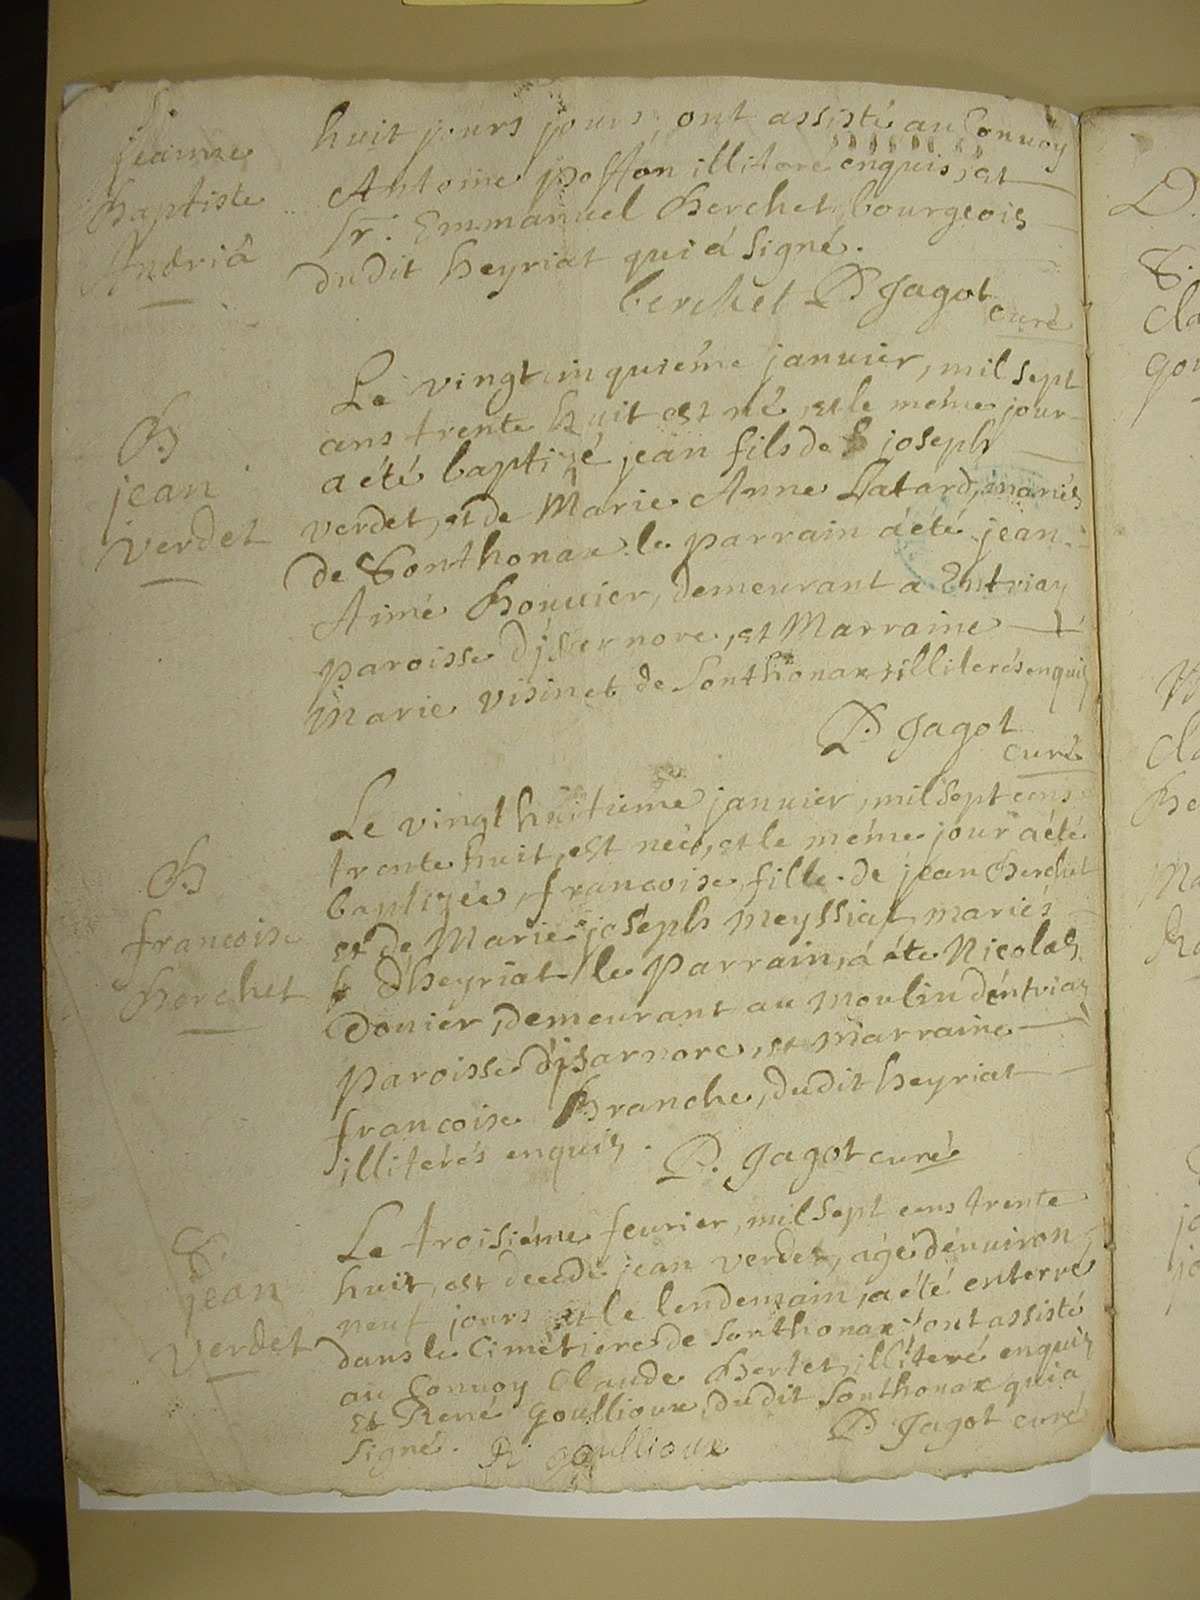 S.
jeanne
Baptiste
Andriâ
huit jours jours, ont assisté au Convoy
Antoine poffon illitere enquis, et
Sr. Emmanuel Berchet, bourgeois
dudit heyriat qui á signé.
berchet D. Jagot
curé
B
jean
verdet
Le vingt cinquiéme januier, mil sept
cens trente huit est né, et le méme jour
a été baptizé jean fils de joseph
verdet, et de Marie Anne Latard, mariés
de Sonthonax le parrain á été jean
Aimé Bouuier, demeurant a Entriay
paroisse d'jsernore, et Marraine
Marie visinet de Sonthonax illiterés enquis
D. Jagot
curé
B
francoise
Berchet
Le vingt huitiéme januier, mil sept cens
trente huit, est neé, et le méme jour a été
baptizée, francoise, fille de jean Berchet
et de Marie joseph Meyssiat, mariés
d'heyriat, le parrain, á été Nicolas
Donier, demeurant au moulin d'éntriay
paroisse d'jsarnore, et marraine
francoise Branche, dudit heyriat
illiterés enquis. D. Jagot curé
S.
jean
verdet
Le troisiéme feurier, mil sept cens trente
huit, est decedé jean verdet, agé d'enuiron
neuf jours et le lendemain, a été enterré
dans le Cimétiere de Sonthonax, ont assisté
au Conuoy Claude Bertet, illiteré enquis
Et René Goullioux, dudit Sonthonax qui a
signé. R. goullioux D. Jagot curé